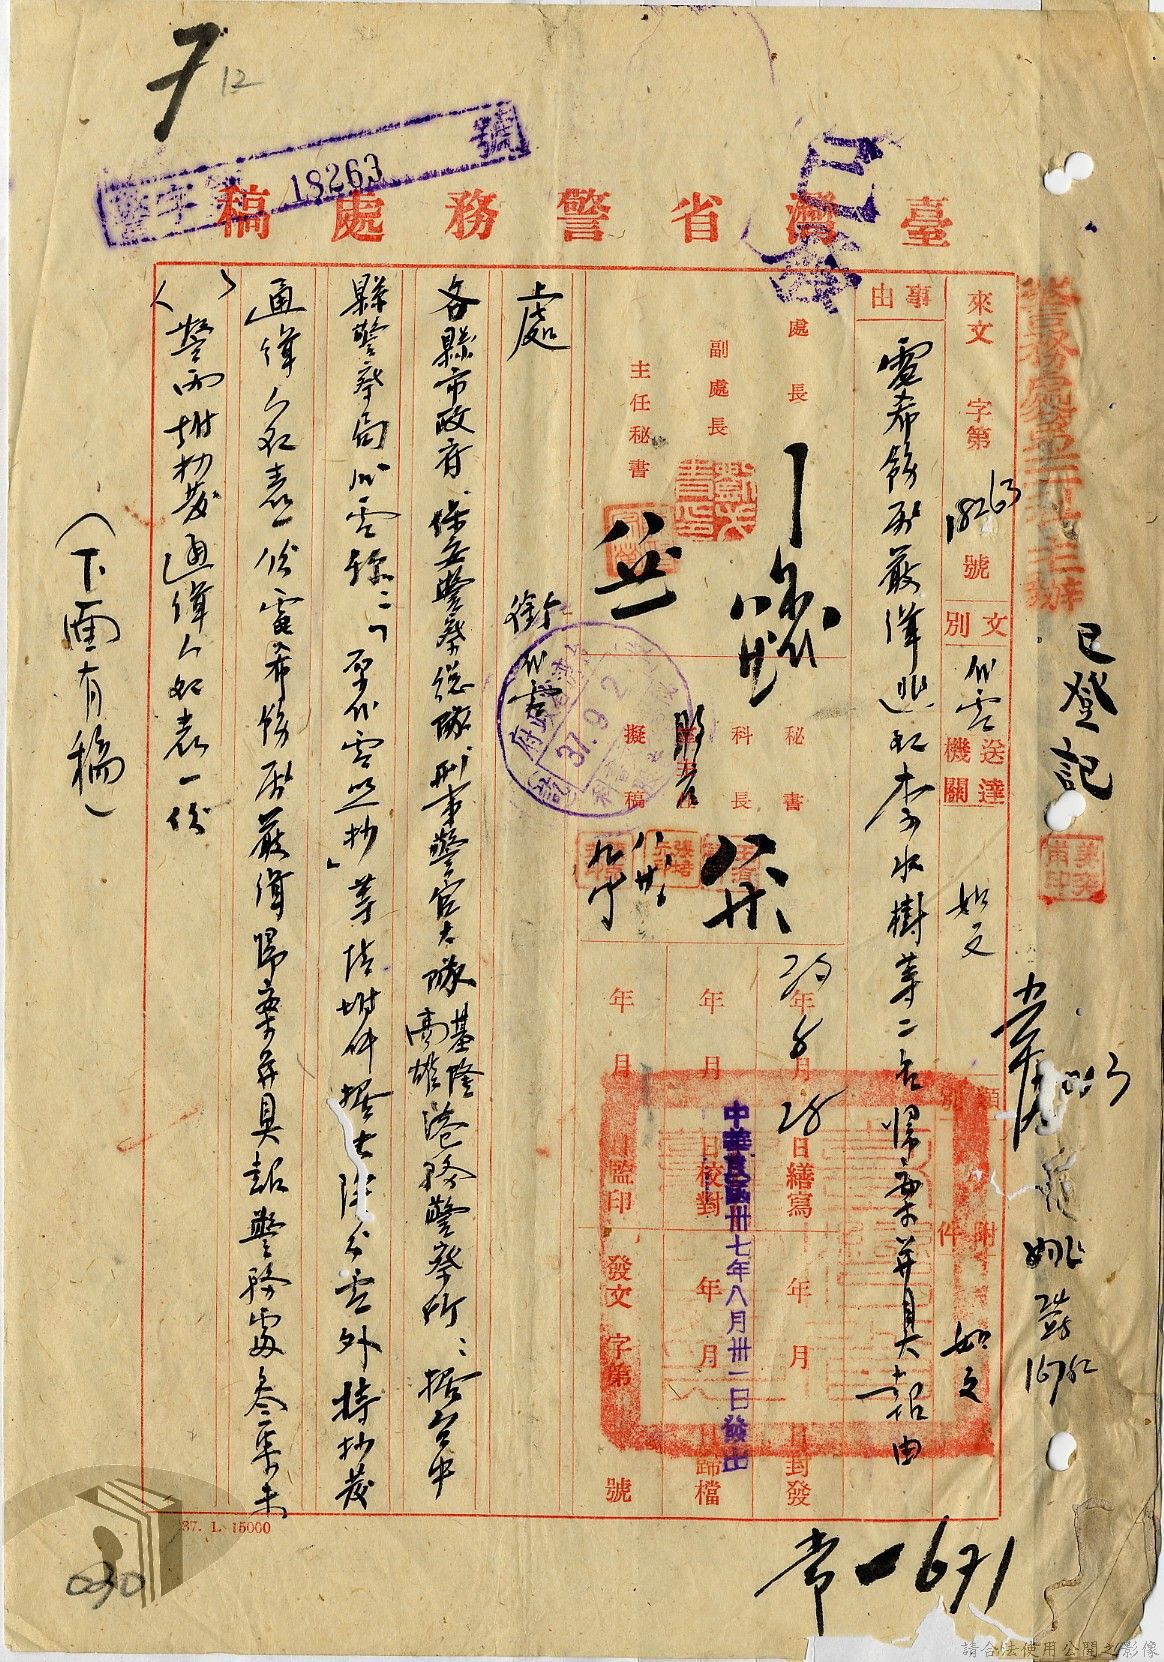 7
12
警字第 18263 號
已發
臺灣省警務處稿
警務處第二科主辦
已登記
來文 字第 18263 號
文別 代電
送達機關 如文
類別
附件 如文
事由
電希飭屬嚴緝逃犯李水樹等二名歸案并具報由
處長
副處長
主任秘書
秘書
科長
擬稿
年 8 月 28 日繕寫
年 月 日校對
年 月 日監印
年 月 日封發
年 月 日歸檔
發文 字第 號
37. 9. 2
中華民國卅七年八月卅一日發出
上處 銜代電
各縣市政府、保安警察總隊、刑事警官大隊、基隆高雄港務警察所：據台中
縣警察局代電稱：「原代電照抄」等情附件據此除分電外特抄發
通緝人犯表一份電希飭屬嚴緝歸案并具報警務處
警丙附抄發通緝人犯表一份
（下面有稿）
37. 1. 15000
030
常一671
16782
請合法使用公開之影像